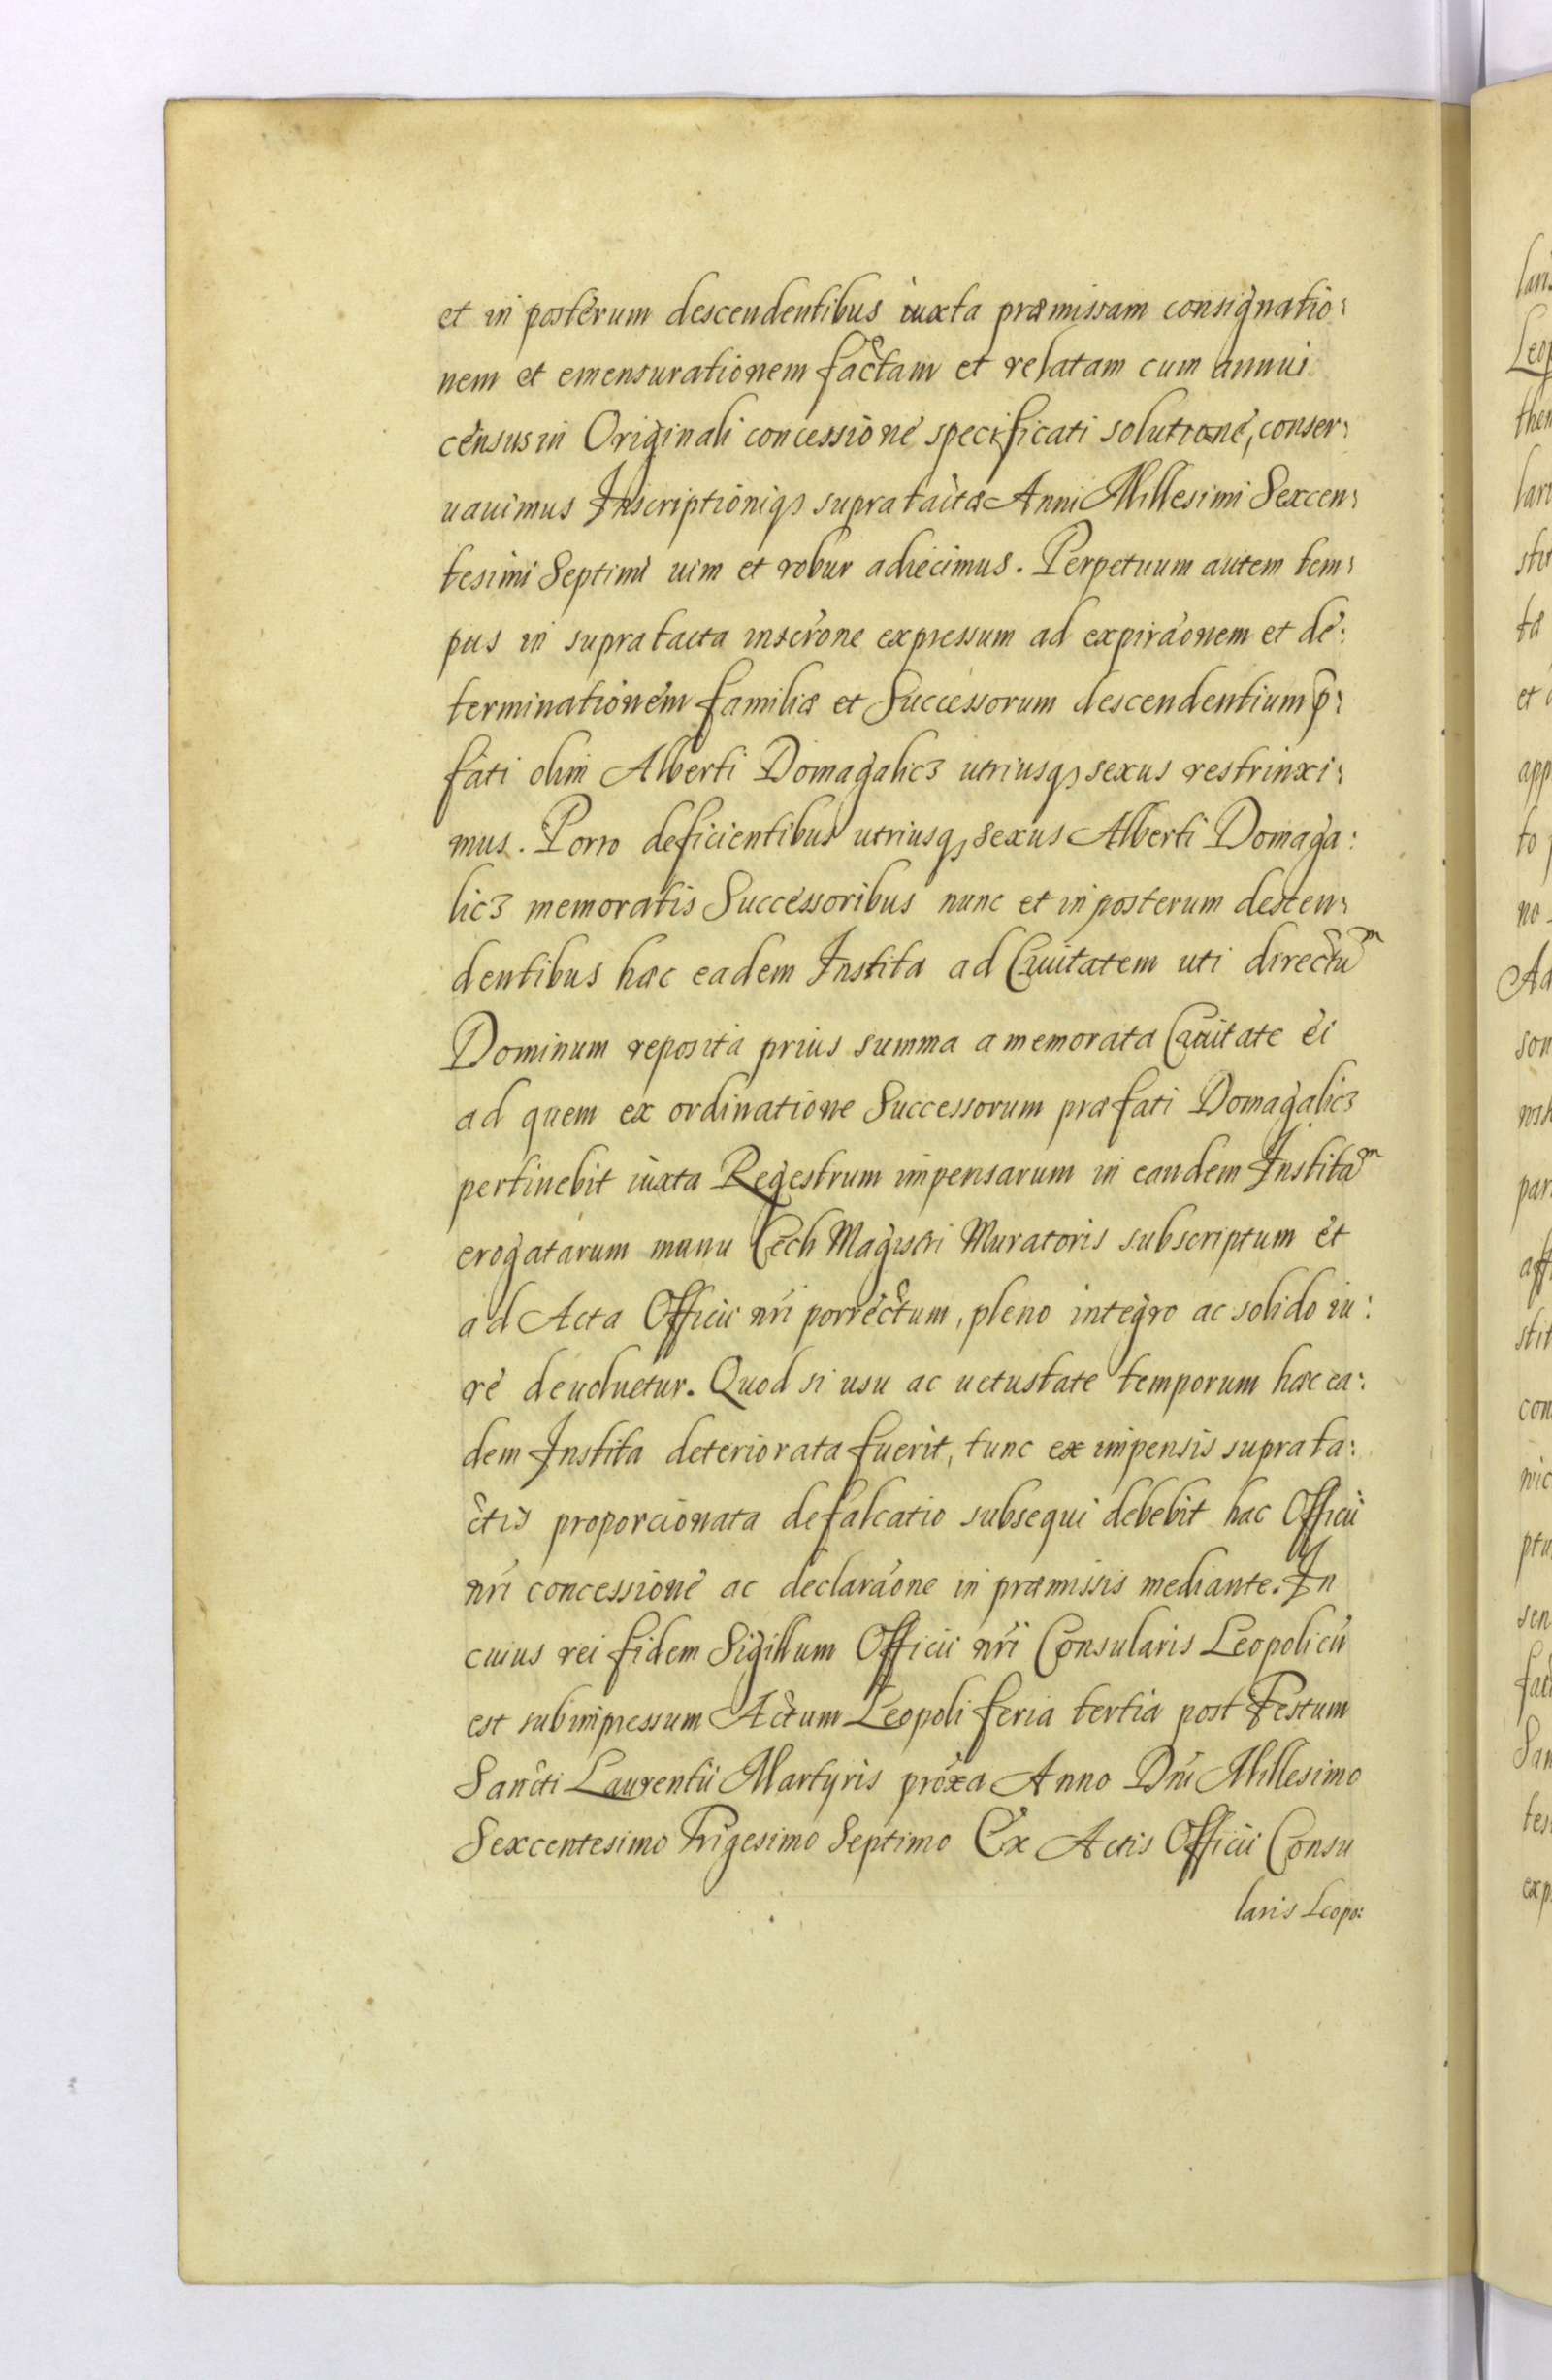 et in posterum descendentibus iuxta præmissam consignatio:
nem et emensurationem factam et relatam cum annui
census in Originali concessione specificati solutione, conser:
uauimus Inscriptioniq₃ supratactæ Anni Millesimi Sexcen:
tesimi Septimi uim et robur adiecimus. Perpetuum autem tem:
pus in supratacta inscr̃one expressum ad expirãonem et de:
terminationem familiæ et Successorum descendentium p̃:
fati olim Alberti Domagalicz utriusq₃ sexus restrinxi:
mus. Porro deficientibus utriusq₃ sexus Alberti Domaga:
licz memoratis Successoribus nunc et in posterum descen:
dentibus hæc eadem Instita ad Ciuitatem uti directũ
Dominum reposita prius summa a memorata Ciuitate ei
ad quem ex ordinatione Successorum præfati Domagalicz
pertinebit iuxta Regestrum impensarum in eandem Institã
erogatarum manu Cech Magistri Muratoris subscriptum et
ad Acta Officii nr̃i porrectum, pleno integro ac solido iu:
re deuoluetur. Quod si usu ac uetustate temporum hæc ea:
dem Instita deteriorata fuerit, tunc ex impensis suprata:
ctis proporcionata defalcatio subsequi debebit hac Officii
nr̃i concessione ac declarãone in præmissis mediante. In
cuius rei fidem Sigillum Officii nr̃i Consularis Leopolien̄
est subimpressum Actum Leopoli feria tertia post Festum
Sancti Laurentii Martyris prox̃a Anno Dñi Millesimo
Sexcentesimo Trigesimo Septimo Ex Actis Officii Consu
laris Leopo: